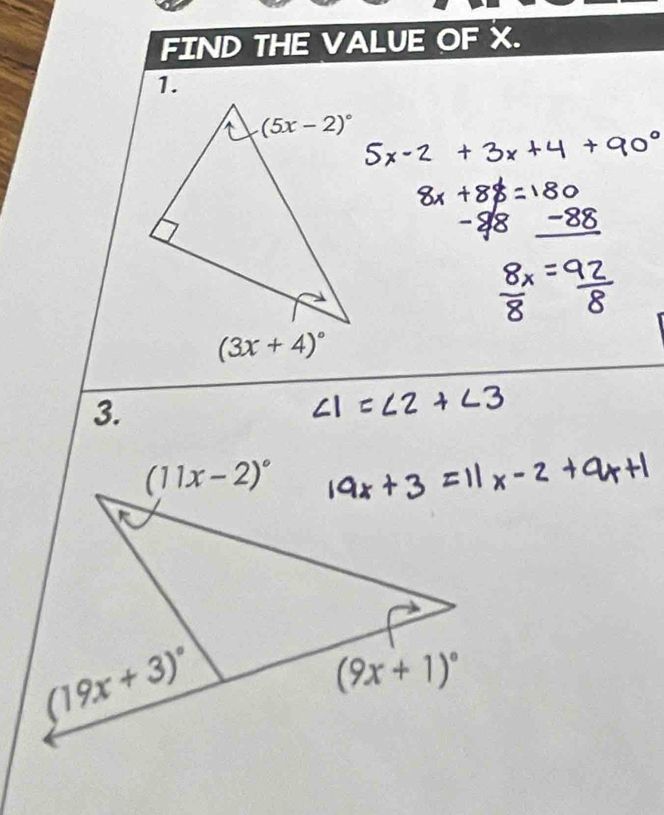 FIND THE VALUE OF X.
1.
(5x - 2)°
5x-2 + 3x+4 + 90°
8x + 88 = 180
-88 -88
8x = 92
8 8
(3x + 4)°
3.
∠1 = ∠2 + ∠3
(11x - 2)°
19x + 3 = 11x - 2 + 9x+1
(19x + 3)°
(9x + 1)°